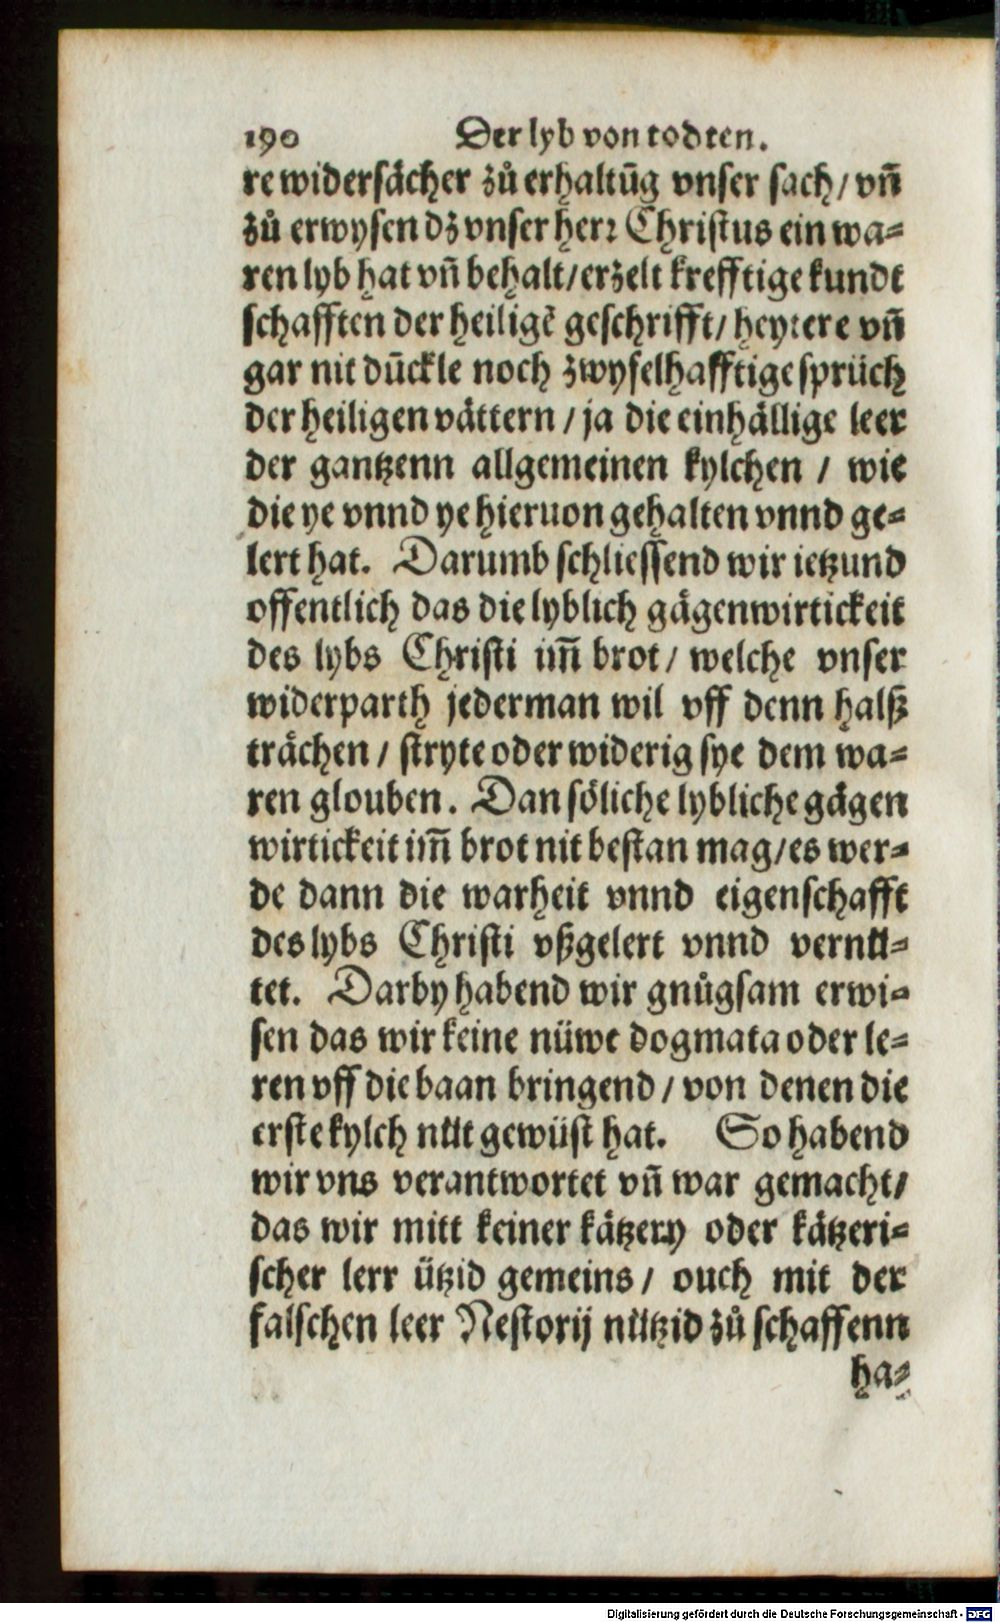 190 Der lyb von todten.
re widersächer zů erhaltūg vnser sach / vn̄
zů erwysen dz vnser herr Christus ein wa⸗
ren lyb hat vn̄ behalt / erzelt krefftige kundt
schafften der heiligē geschrifft / heytere vn̄
gar nit dūckle noch zwyfelhafftige sprüch
der heiligen vättern / ja die einhällige leer
der gantzenn allgemeinen kylchen / wie
die ye vnnd ye hieruon gehalten vnnd ge⸗
lert hat. Darumb schliessend wir ietzund
offentlich das die lyblich gägenwirtickeit
des lybs Christi im̄ brot / welche vnser
widerparth jederman wil vff denn halß
trächen / stryte oder widerig sye dem wa⸗
ren glouben. Dan söliche lybliche gägen
wirtickeit im̄ brot nit bestan mag / es wer⸗
de dann die warheit vnnd eigenschafft
des lybs Christi vßgelert vnnd vernü⸗
tet. Darby habend wir gnůgsam erwi⸗
sen das wir keine nüwe dogmata oder le⸗
ren vff die baan bringend / von denen die
erste kylch nüt gewüst hat. So habend
wir vns verantwortet vn̄ war gemacht /
das wir mitt keiner kätzery oder kätzeri⸗
scher lerr ützid gemeins / ouch mit der
falschen leer Nestorij nützid zů schaffenn
ha⸗
Digitalisierung gefördert durch die Deutsche Forschungsgemeinschaft - DFG